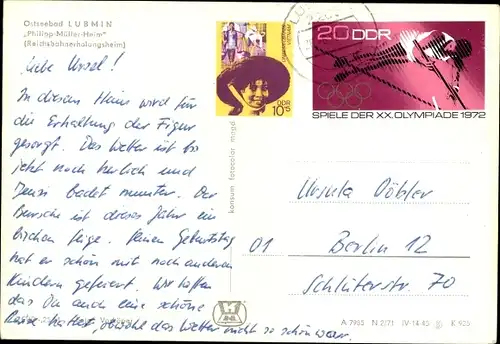 Ostseebad LUBMIN
"Philipp-Müller-Heim"
(Reichsbahnerholungsheim)
Liebe Ursel!
In diesem Haus wird für
die Erhaltung der Figur
gesorgt. Das Wetter ist bis
jetzt noch herlich und
badet munter. Der
Bursche ist dieses Jahr ein
bischen feige. Seinen Geburtstag
hat er schön mit noch anderen
Kindern gefeiert. Wir hoffen
das Du auch eine schöne
Reise hattest, obwohl das Wetter nicht so schön war.
konsum fotocolor magd
VIETNAM
DDR
10+5
20 DDR
SPIELE DER XX. OLYMPIADE 1972
Ursula Döbler
01 Berlin 12
Schlüterstr. 70
A 7955 N 2/71 IV-14-45 K 925